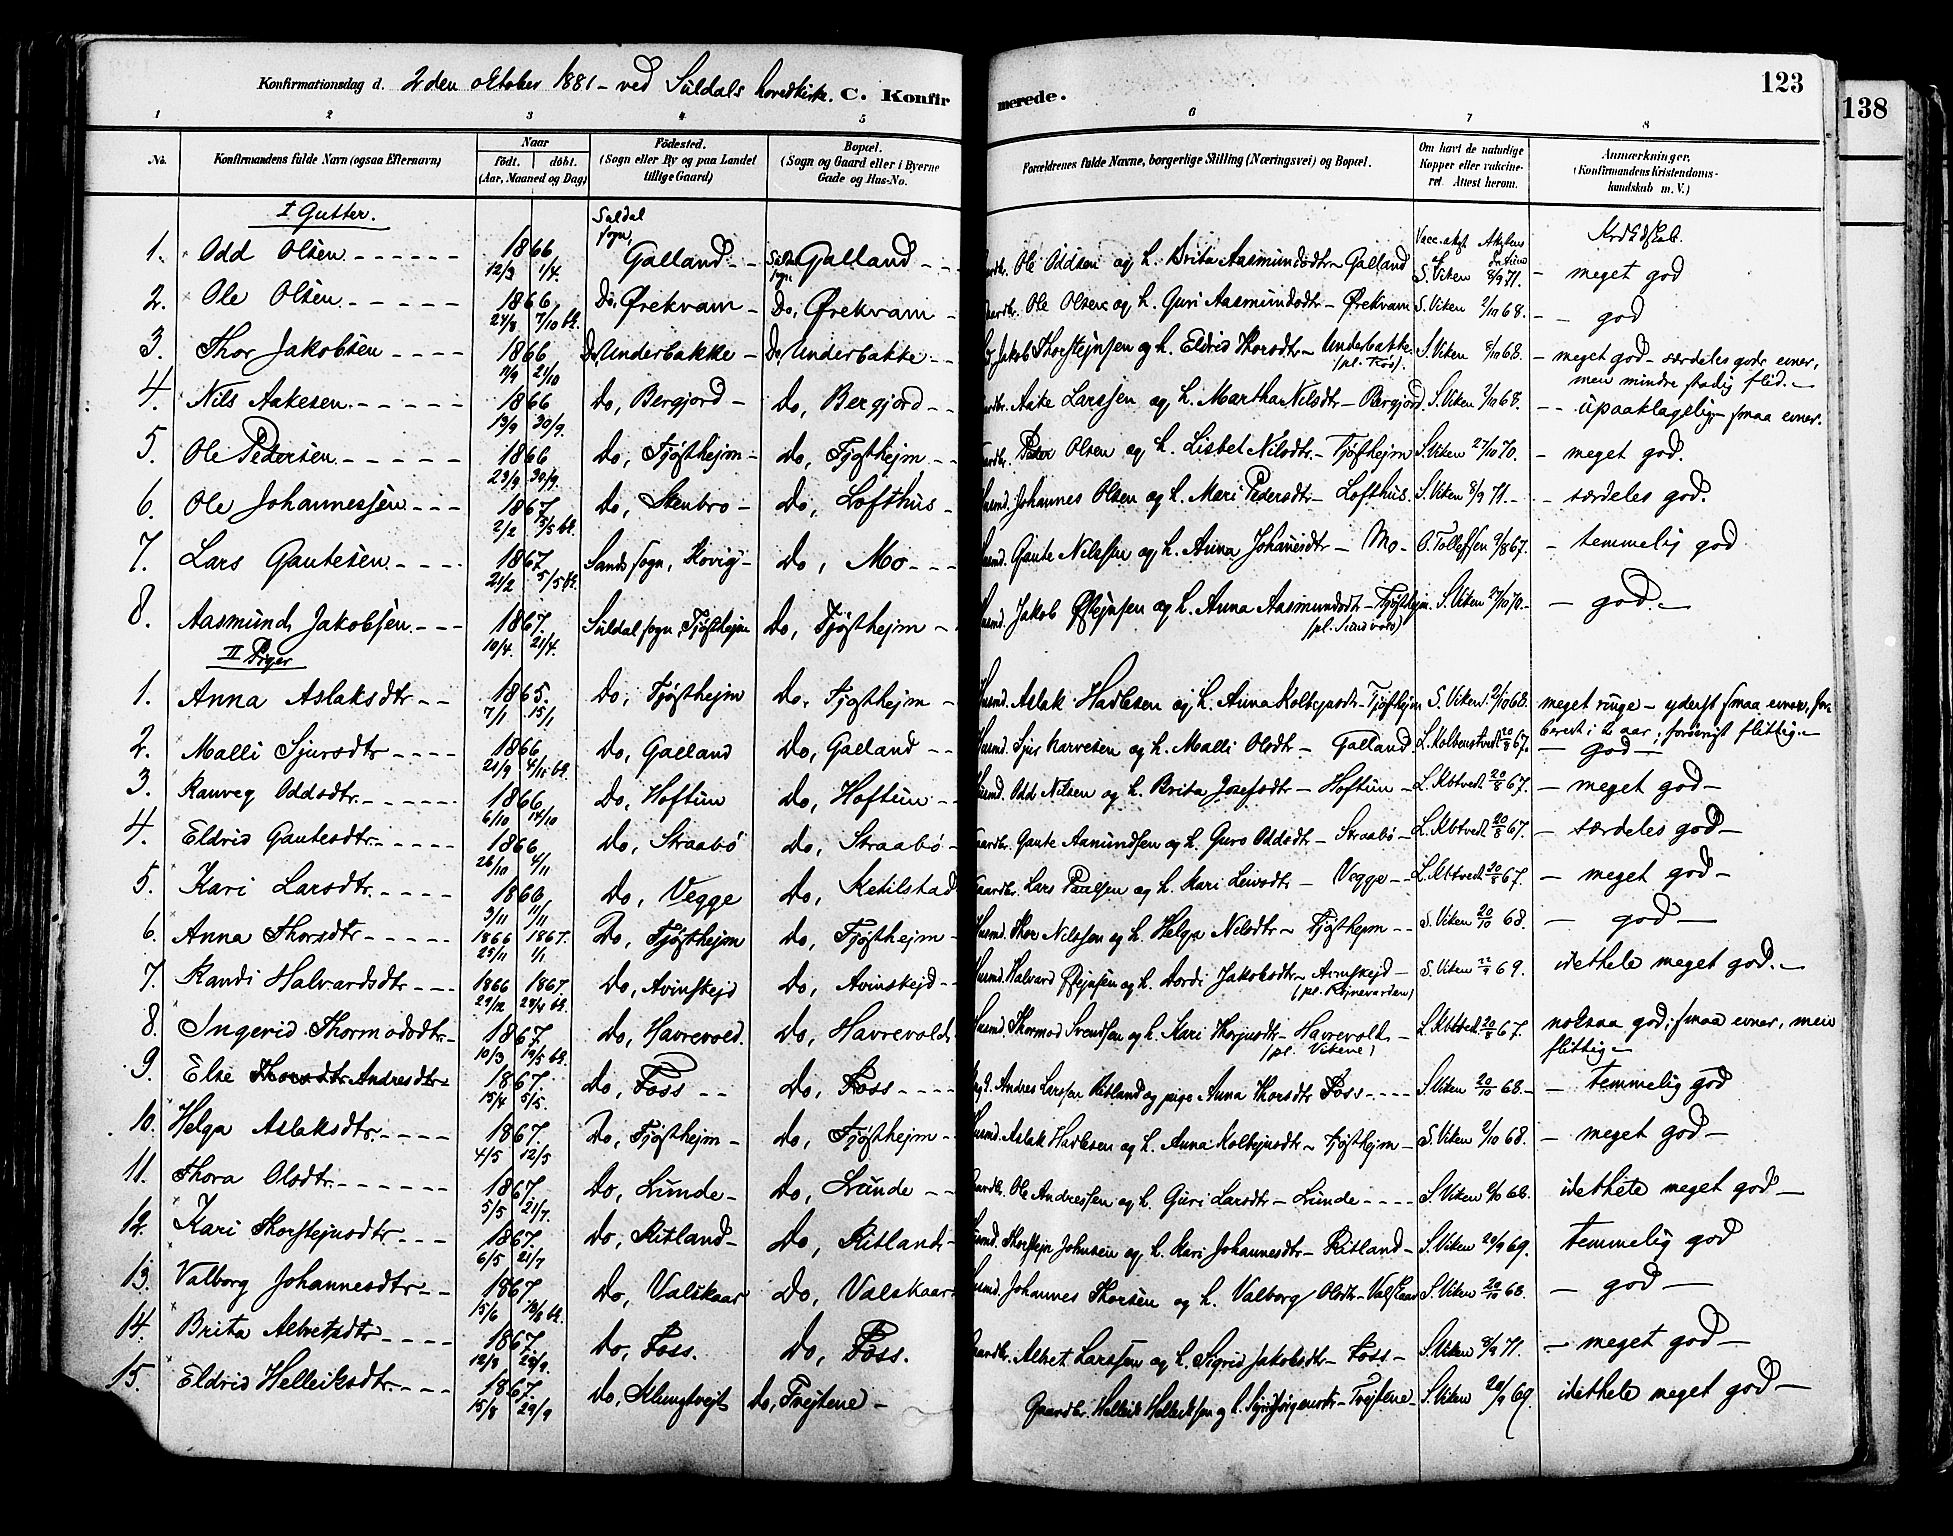 Konfirmationsdag d. 2den oktober 1881 - ved Suldals hovedkirke. C. Konfirmerede. 123
138
1 2 3 4 5 6 7 8
No. Konfirmandens fulde Navn (ogsaa Efternavn) Naar Födt. döbt. (Aar, Maaned og Dag) Födested. (Sogn eller By og paa Landet tillige Gaard) Bopæl. (Sogn og Gaard eller i Byerne Gade og Hus-No. Forældrenes fulde Navne, borgerlige Stilling (Næringsvei) og Bopæl. Om havt de naturlige Kopper eller vakcineret. Attest herom. Anmærkninger. (Konfirmandens Kristendomskundskab m. V.)
I Gutter.
1. Odd Olsen 1866 12/3 1/4. Suldal sogn, Galland Suldal sogn Galland Ole Oddsen og h. Brita Aasmundsdtr - Galland S. Viken 8/9 71. - meget god
2. Ole Olsen 1866 27/8 7/10 bk. Do, Ørekvam Do, Ørekvam Ole Olsen og h. Guri Aasmundsdtr - Ørekvam S. Viken 2/10 68. - god
3. Thor Jakobsen 1866 21/10 Do, Underbakke Do, Underbakke Jakob Thorstejnsen og h. Eldrid Thorsdtr - Underbakke S. Viken 8/10 68. - meget god - særdeles gode evner, men mindre stadig flid. -
4. Nils Aakesen 1866 13/9 30/9. Do, Bergjord Do, Bergjord Aake Larssen og h. Martha Nilsdtr - Bergjord S. Viken 2/10 68. - upaaklagelig - smaa evner.
5. Ole Pedersen 1866 23/9 30/9. Do, Tjøsthejm Do, Tjøsthejm Peder Olsen og h. Lisbet Nilsdtr - Tjøsthejm S. Viken 27/10 70. - meget god.
6. Ole Johannessen 1867 2/2 15/5 bk. Do, Stenbro Do, Lofthus Johannes Olsen og h. Mari Pedersdtr - Lofthus. S. Viken 8/9 71. - særdeles god.
7. Lars Gautesen 1867 21/2 5/5 bk. Sands sogn, Hovig Do, Mo Gaute Nilssen og h. Anna Johanesdtr - Mo O. Tollefsen 9/8 67. - temmelig god
8. Aasmund Jakobsen 1867. 10/4. 21/4. Suldal sogn, Tjøsthejm Do, Tjøsthejm Husmd. Jakob Østejnsen og h. Anna Aasmundsdtr - Tjøsthejm S. Viken 27/10 70. - god. -
II Piger
1. Anna Aslaksdtr 1865. 7/1 15/1 Do, Tjøsthejm Do, Tjøsthejm Husmd. Aslak Hadlesen og h. Anna Kolbejnsdtr - Tjøsthejm S. Viken 2/10 68. meget ringe - yderst smaa evner, forberedt i 2 aar; forøvrigt flittig. -
2. Malli Sjursdtr 1866 21/9 4/11 bk. Do, Galland Do, Galland Husmd. Sjur Karvesen og h. Malli Olsdtr - Galland L. Kolbenstvedt 20/8 67. - god -
3. Ranveg Oddsdtr. 1866 6/10 14/10 Do, Hoftun Do, Hoftun Husmd. Odd Nilsen og h. Brita Josefsdtr - Hoftun L. Kbtvedt 20/8 67. - meget god -
4. Eldrid Gautesdtr. 1866 26/10 4/11 Do, Straabø Do, Straabø Gaardbr. Gaute Aamundsen og h. Guro Oddsdtr - Straabø L. Kbtvedt 20/8 67. - særdeles god -
5. Kari Larsdtr. 1866 3/11 11/11 Do, Vegge Do, Ketilstad Gaardbr. Lars Paulsen og h. Kari Leivsdtr - Vegge L. Kbtvedt 20/8 67. - meget god -
6. Anna Thorsdtr 1866 25/11 1867. 1/1. Do, Tjøsthejm Do, Tjøsthejm Husmd. Thor Nilssen og h. Helga Nilsdtr - Tjøsthejm S. Viken 20/10 68. - god -
7. Randi Halvardsdtr 1866 29/12 1867 28/4 bk. Do, Avinskejd Do, Avinskejd Husmd. Halvard Østejnsen og h. Dordi Jakobsdtr - Avinskejd S. Viken 69. idethele meget god. -
8. Ingerid Thormodsdtr 1867 10/3 19/5 bk. Do, Havrevold. Do, Havrevold Husmd. Thormod Svendsen og h. Kari Thorjusdtr - Havrevold (pl. Vikene) L. Kbtvedt 20/8 67. noksaa god; smaa evner, men flittig -
9. Else Thorsdtr Andresdtr 1867. 15/4 5/5. Do, Foss Do, Foss Andres Larssen Ritland og pige Anna Thorsdtr Foss S. Viken 20/10 68. - temmelig god
10. Helga Aslaksdtr. 1867. 4/5 12/5 Do, Tjøsthejm Do, Tjøsthejm Husmd. Aslak Hadlesen og h. Anna Kolbejnsdtr - Tjøsthejm S. Viken 2/10 68. - meget god -
11. Thora Olsdtr. 1867. 5/5 21/7. Do, Lunde Do, Lunde Gaardbr. Ole Andressen og h. Guri Larsdtr - Lunde S. Viken 68. idethele meget god -
12. Kari Thorstejnsdtr 1867. 6/5 21/7 Do, Ritland Do, Ritland Husmd. Thorstejn Johnsen og h. Kari Johannesdtr - Ritland S. Viken 20/9 69. temmelig god
13. Valborg Johannesdtr 1867 15/6 Do, Valskaar Do, Valskaar Husmd. Johannes Thorsen og h. Valborg Olsdtr - Valskaar S. Viken 20/10 68. - god -
14. Brita Alvetsdtr 1867. 12/8 Do, Foss. Do, Foss. Gaardbr. Alvet Larssen og h. Sigrid Jakobsdtr - Foss S. Viken 8/9 71. - meget god -
15. Eldrid Helleiksdtr. 1867. 15/8 29/9 Do, Klungtvejt Do, Tvejtene Gaardbr. Helleik Helleiksen og h. - Tvejtene S. Viken 20/9 69. idethele meget god -